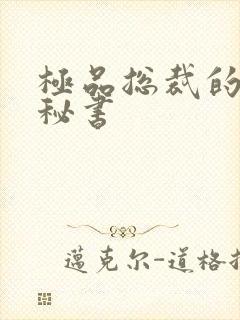 極品总裁的
秘書
邁克尔-道格拉